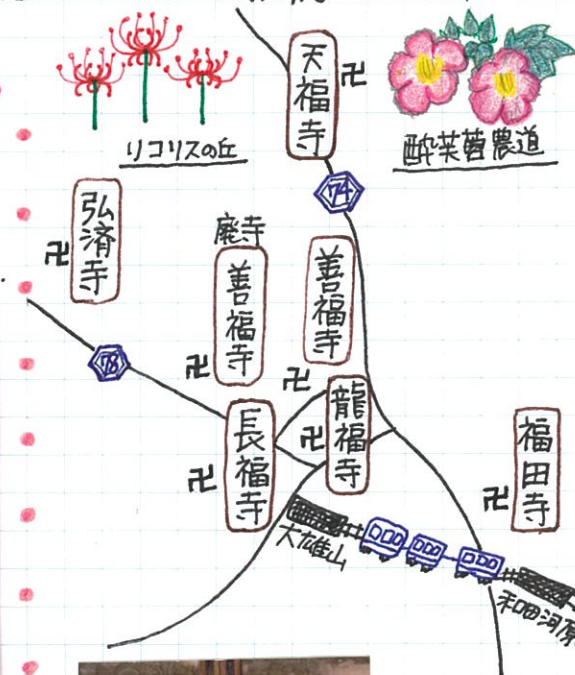 天福寺
卍
リコリスの丘
酔芙蓉農道
74
弘済寺
卍
廃寺
善福寺
卍
善福寺
卍
78
長福寺
卍
龍福寺
卍
福田寺
卍
大雄山
和田河原